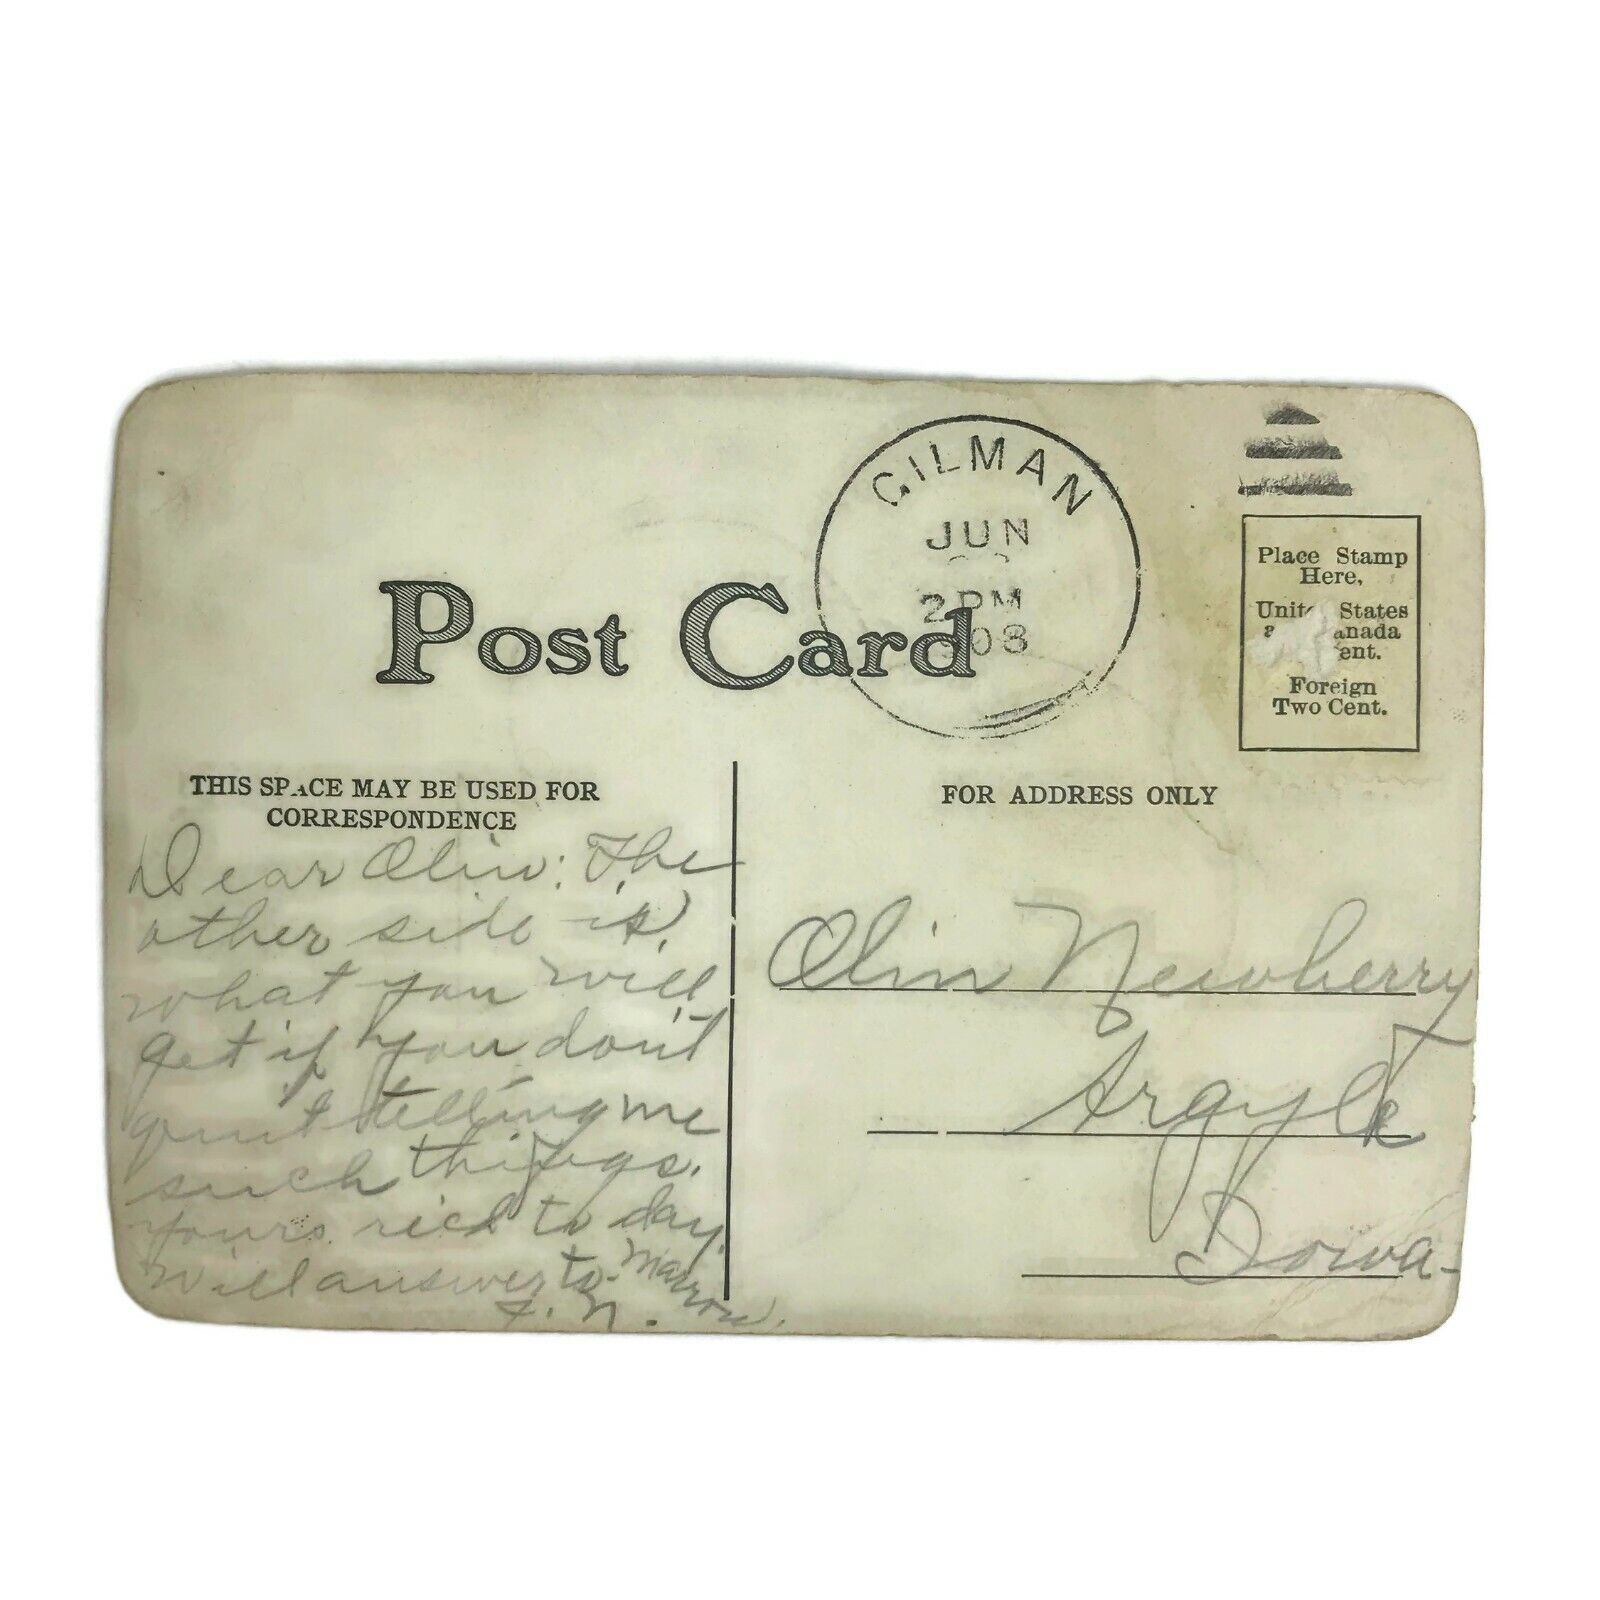 GILMAN
JUN
2 PM
908
Post Card
Place Stamp
Here,
United States
Canada
ent.
Foreign
Two Cent.
THIS SPACE MAY BE USED FOR
CORRESPONDENCE
FOR ADDRESS ONLY
Dear Olin: The
other side is
what you will
get if you don't
quit telling me
such things.
yours recd to day.
Will answer to-marrow.
Olin Newberry
Argyle
Iowa-